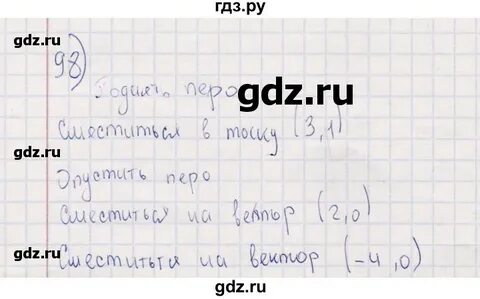 гдз.ру
gdz.ru gdz.ru
98)
Поднять перо
gdz.ru
Сместиться в точку (3,1)
gdz.ru
Опустить перо
Сместиться на вектор (2,0)
gdz.ru
Сместиться на вектор (-4,0)
gdz.ru gdz.ru